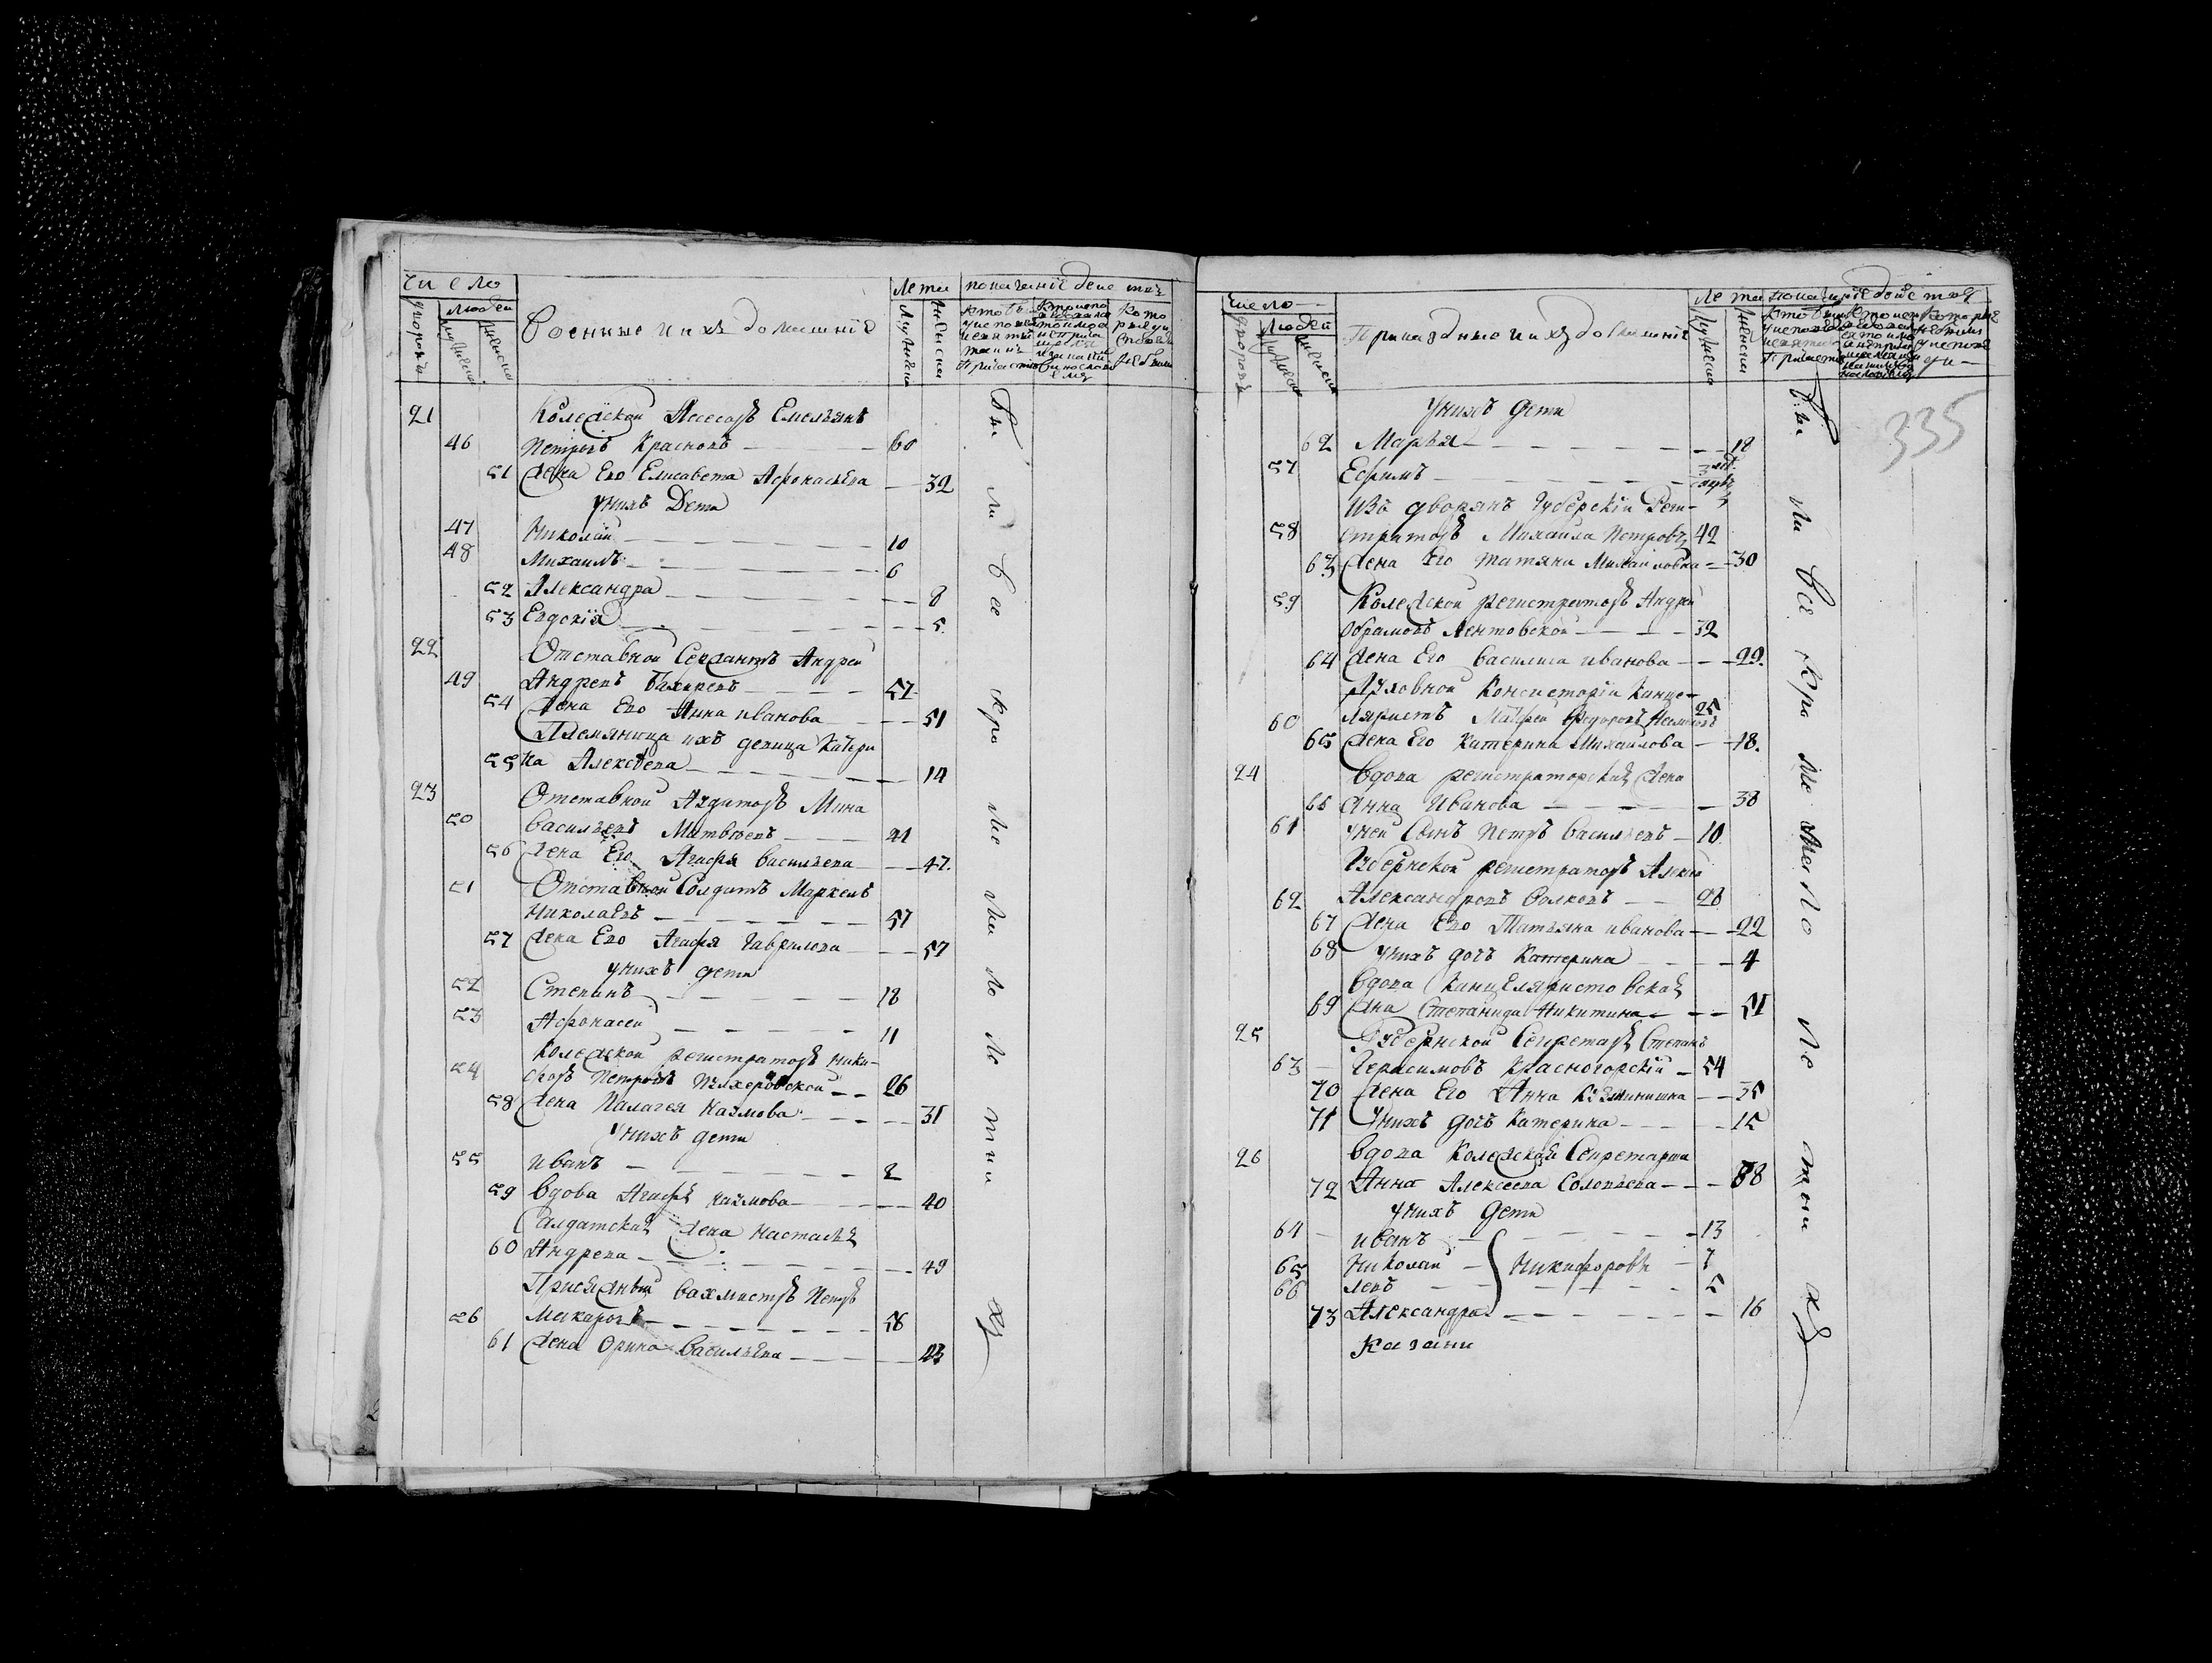 Число
Лета
показание действа
дворовъ
людей
Военные и ихъ домашнiе
мужеска
женска
21
Колежской Асесоръ Емельянъ
46 Петровъ Красновъ 60
51 Жена Его Елисавета Афонасьева 32
у нихъ Дети
47 Николай 10
48 Михаилъ 6
52 Александра 8
53 Евдокiя 5
22 Отставной Сержантъ Андрей
49 Андреевъ 57
54 Жена Его Анна иванова 51
Племяница ихъ девица Катери
55 на Алексеева 14
23 Отставной Аудиторъ Мина
50 Васильевъ Матвеевъ 41
56 Жена Его Агафья Васильева 47
51 Отставной Солдатъ Маркелъ
Николаевъ 57
57 Жена Его Агафья Гаврилова 57
у нихъ дети
52 Степанъ 18
53 Афонасей 11
Колежской регистраторъ Ники-
54 форъ Петровъ 26
58 Жена Палагея Наумова 31
у нихъ дети
55 иванъ 2
59 Вдова Агафья наумова 40
Салдатская жена Насталья
60 Андреева 49
Присяжный Вахмистръ Петръ
56 Макаровъ 58
61 Жена Орина Васильева 43
Были все кроме малолетних
Число
Лета
показание действа
дворовъ
людей
Приказные и ихъ домашнiе
335
у нихъ дети
62 Марья 18
57 Ефимъ
Изъ дворянъ Губерскiй Реги-
58 страторъ Михаила Петровъ 42
63 Жена Его татяна Михайловна 30
59 Колежской регистраторъ Андрей
Обрамовъ Лентовской 32
64 Жена Его василиса иванова 29
Духовной Консисторiи Канце-
60 ляристъ Матфей Федоровъ 25
65 Жена Его Катерина Михайлова 18
24 Вдова регистраторская жена
66 Анна Иванова 38
61 у ней Сынъ Петръ Васильевъ 10
Губернской регистраторъ Алексей
62 Александровъ Волковъ 28
67 Жена Его Татьяна иванова 22
68 у нихъ дочь Катерина 4
Вдова Канцеляристовская
69 жена Степанида Никитина 51
25 Губернской Секретарь Степанъ
63 Герасимовъ Красногорскiй 54
70 Жена Его Анна Козминишна 35
71 у нихъ дочь Катерина 15
26 Вдова Колежская Секретарша
72 Анна Алексеева Соловьева 38
у нихъ дети
64 иванъ 13
65 Николай Никифоровы 7
66 Левъ 5
73 Александра 16
Казани
Были все кроме малолетних